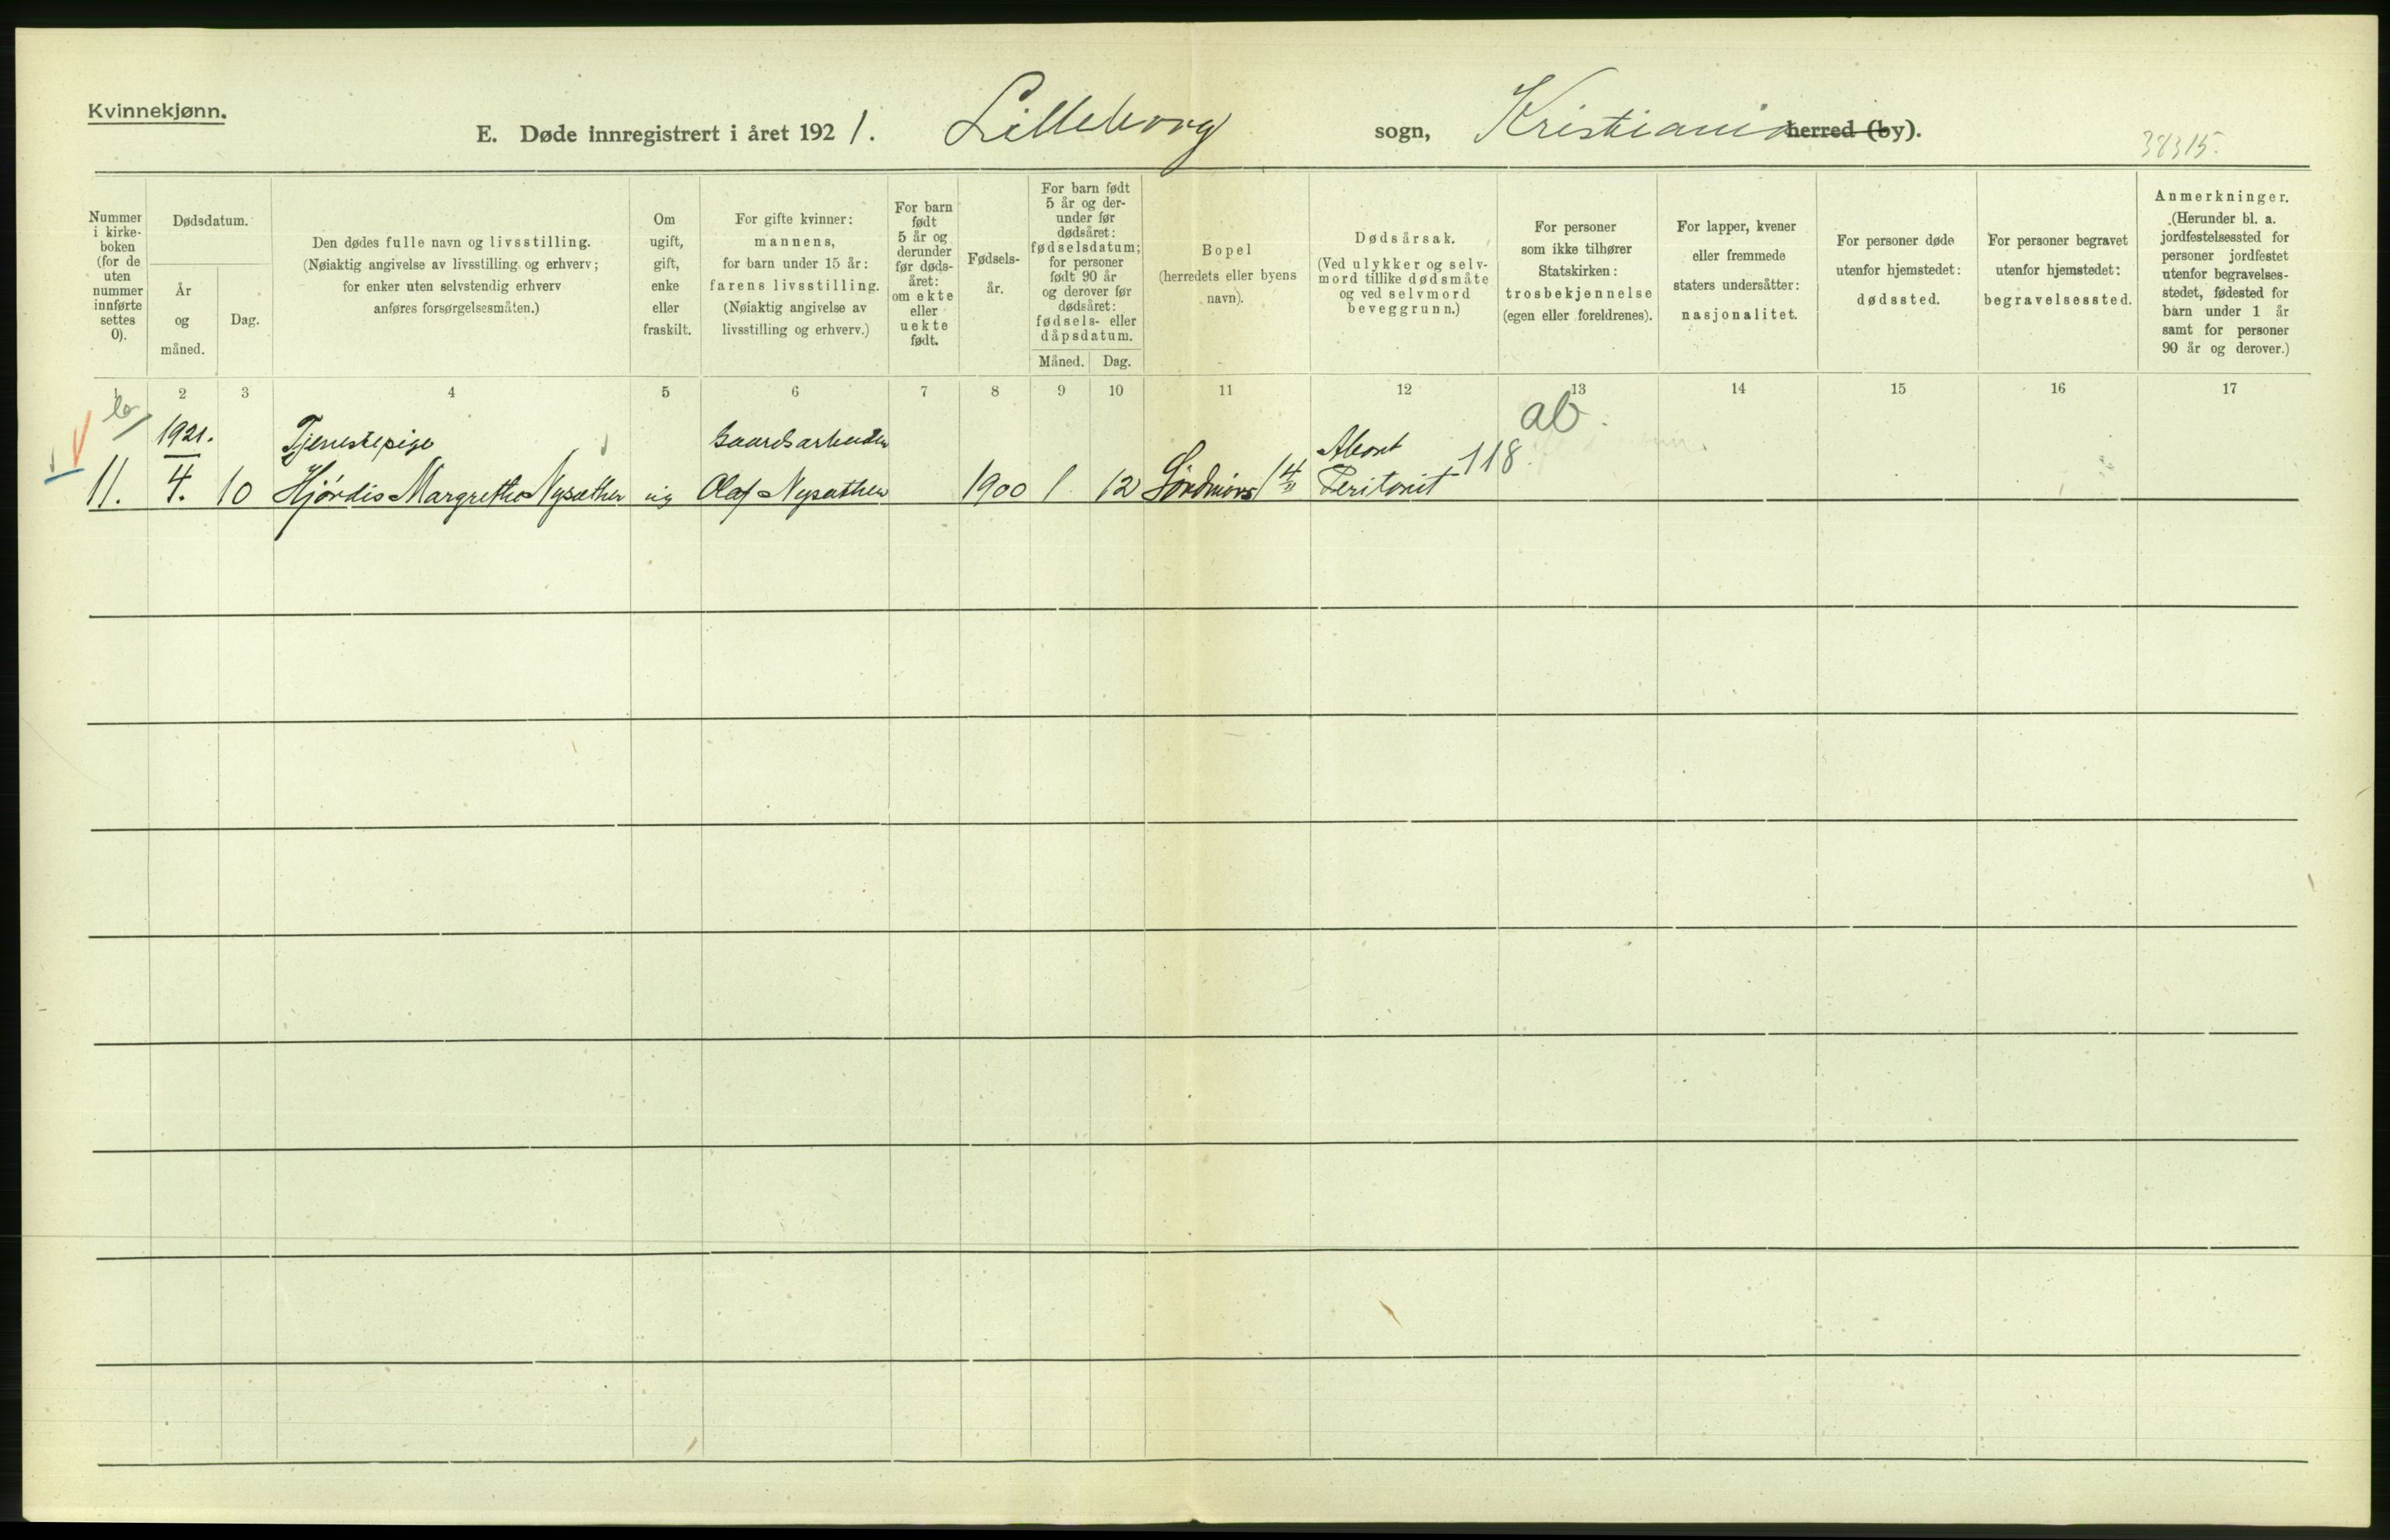 Kvinnekjønn.
E. Døde innregistrert i året 1921. Lilleborg sogn, Kristiania herred (by).
38315.
Nummer i kirke-boken (for de uten nummer innførte settes 0).
Dødsdatum.
År og måned.
Dag.
Den dødes fulle navn og livsstilling.
(Nøiaktig angivelse av livsstilling og erhverv;
for enker uten selvstendig erhverv
anføres forsørgelsesmåten.)
Om
ugift,
gift,
enke
eller
fraskilt.
For gifte kvinner:
mannens,
for barn under 15 år:
farens livsstilling.
(Nøiaktig angivelse av
livsstilling og erhverv.)
For barn
født
5 år og
derunder
før døds-
året:
om ekte
eller
uekte
født.
Fødsels-
år.
For barn født
5 år og der-
under før
dødsåret:
fødselsdatum;
for personer
født 90 år
og derover før
dødsåret:
fødsels- eller
dåpsdatum.
Måned. Dag.
Bopel
(herredets eller byens
navn).
Dødsårsak.
(Ved ulykker og selv-
mord tillike dødsmåte
og ved selvmord
beveggrunn.)
For personer
som ikke tilhører
Statskirken:
trosbekjennelse
(egen eller foreldrenes).
For lapper, kvener
eller fremmede
staters undersåtter:
nasjonalitet.
For personer døde
utenfor hjemstedet:
dødssted.
For personer begravet
utenfor hjemstedet:
begravelsessted.
Anmerkninger.
(Herunder bl. a.
jordfestelsessted for
personer jordfestet
utenfor begravelses-
stedet, fødested for
barn under 1 år
samt for personer
90 år og derover.)
1 2 3 4 5 6 7 8 9 10 11 12 13 14 15 16 17
ab.
1921. Tjenestepige Gaardsarbeider Abort
11. 4. 10 Hjørdis Margrethe Nysæther ug Olaf Nysæther 1900 1 12 Peritonit 118.